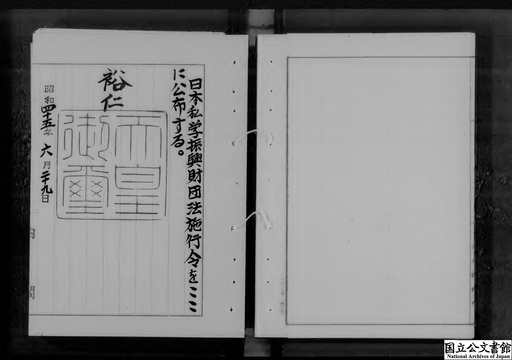 日本私学振興財団法施行令をここ
に公布する。
裕仁
天皇
御璽
昭和四十五年六月二十九日
国立公文書館
National Archives of Japan